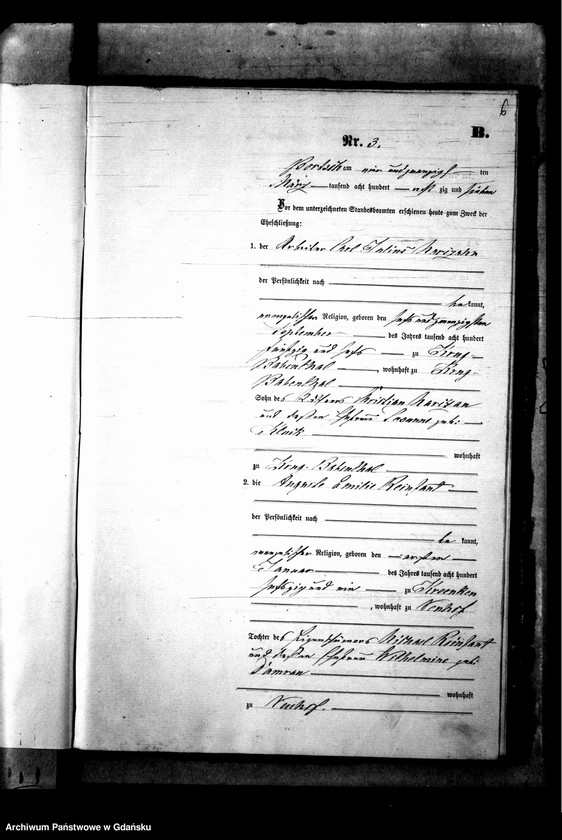 6
B.
Nr. 3.
am vier und zwanzigs ten
März tausend acht hundert acht zig und sieben
Vor dem unterzeichneten Standesbeamten erschienen heute zum Zweck der
Eheschließung:
1. der Arbeiter Carl Julius
der Persönlichkeit nach
be kannt,
evangelischer Religion, geboren den sechs und zwanzigsten
September des Jahres tausend acht hundert
fünfzig und sechs zu
Babenthal, wohnhaft zu
Babenthal
Sohn des Christian
und dessen Ehefrau Susanne geb.
wohnhaft
zu Babenthal
2. die Auguste Emilie Reinfant
der Persönlichkeit nach
be kannt,
evangelischer Religion, geboren den ersten
Januar des Jahres tausend acht hundert
sechszig und ein zu
, wohnhaft zu Neuhof
Tochter des Eigenthümers Michael Reinfant
und dessen Ehefrau Wilhelmine geb.
wohnhaft
zu Neuhof.
Archiwum Państwowe w Gdańsku